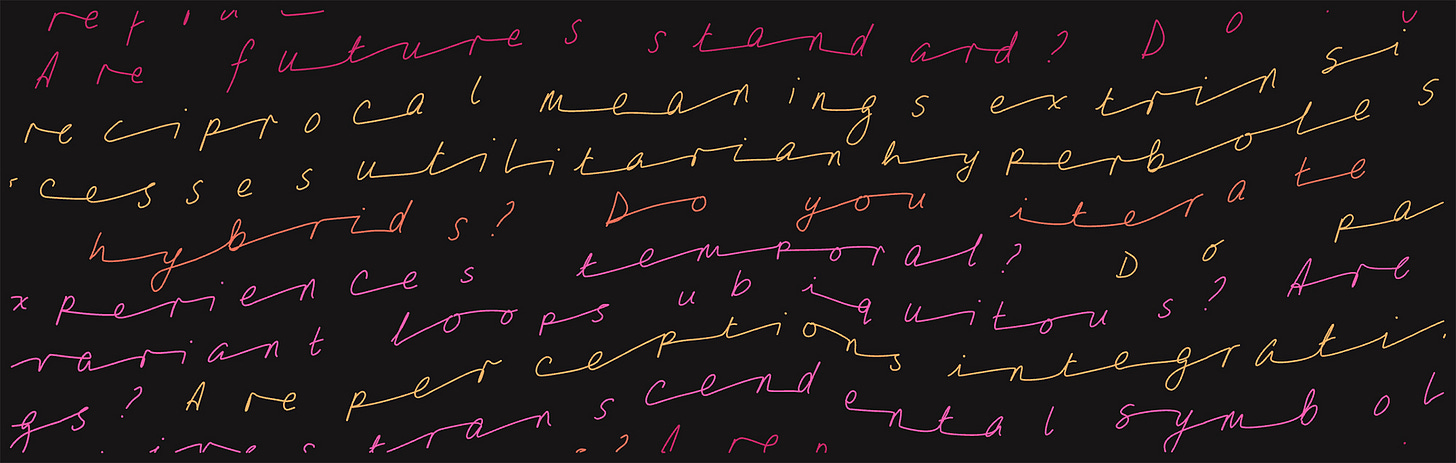 Are futures standard? Do
reciprocal meanings extrinsi
cesses utilitarian hyperboles
hybrids? Do you iterate
xperiences temporal? Do pa
variant loops ubiquitous? Are
gs? Are perceptions integrati
transcendental symbol
? Are